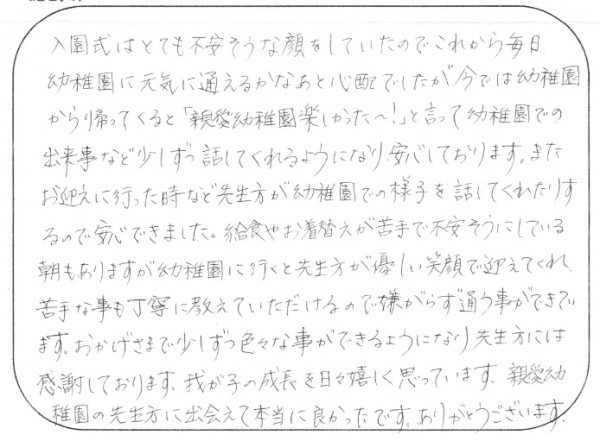 入園式はとても不安そうな顔をしていたのでこれから毎日
幼稚園に元気に通えるかなあと心配でしたが今では幼稚園
から帰ってくると「親愛幼稚園楽しかった～!」と言って幼稚園での
出来事など少しずつ話してくれるようになり、安心しております。また
お迎えに行った時など先生方が幼稚園での様子を話してくれたりす
るので安心できました。給食やお着替えが苦手で不安そうにしている
朝もありますが幼稚園に行くと先生方が優しい笑顔で迎えてくれ、
苦手な事も丁寧に教えていただけるので嫌がらず通う事ができてい
ます。おかげさまで少しずつ色々な事ができるようになり先生方には
感謝しております。我が子の成長を日々嬉しく思っています。親愛幼
稚園の先生方に出会えて本当に良かったです。ありがとうございます。